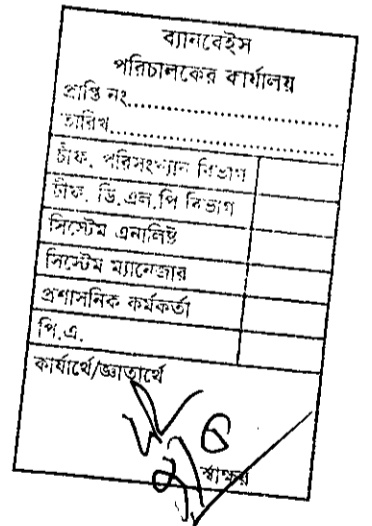 ব্যানবেইস
পরিচালকের কার্যালয়
প্রাপ্তি নং....................
তারিখ....................
চীফ, পরিসংখ্যান বিভাগ
চীফ, ডি.এল.পি বিভাগ
সিস্টেম এনালিষ্ট
সিস্টেম ম্যানেজার
প্রশাসনিক কর্মকর্তা
পি.এ.
কার্যার্থে/জ্ঞাতার্থে
স্বাক্ষর